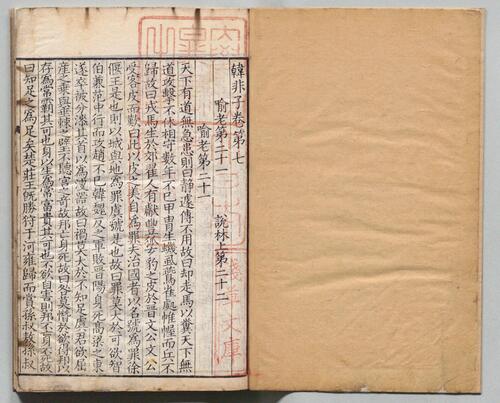 韓非子卷第七
喻老第二十一 說林上第二十二
喻老第二十一
天下有道無急患則曰靜遽傳不用故曰却走馬以糞天下無
道攻擊不休相守數年不已甲冑生蟣蝨鷰雀處帷幄而兵不
歸故曰戎馬生於郊翟人有獻豐狐玄豹之皮於晉文公文公
受客皮而歎曰此以皮之美自為罪夫治國者以名號為罪徐
偃王是也則以城與地為罪虞虢是也故曰罪莫大於可欲智
伯兼范中行而攻趙不已韓魏反之軍敗晉陽身死高梁之東
遂卒被分漆其首以為溲器故曰禍莫大於不知足虞君欲屈
產之乘與垂棘之璧不聽宮之奇故邦亡身死故曰咎莫憯於欲得邦以
存為常霸其可也身以生為常富貴其可也不以欲自害則邦不亡身不死故
曰知足之為足矣楚莊王既勝狩于河雍歸而賞孫叔敖孫叔
淺草文庫